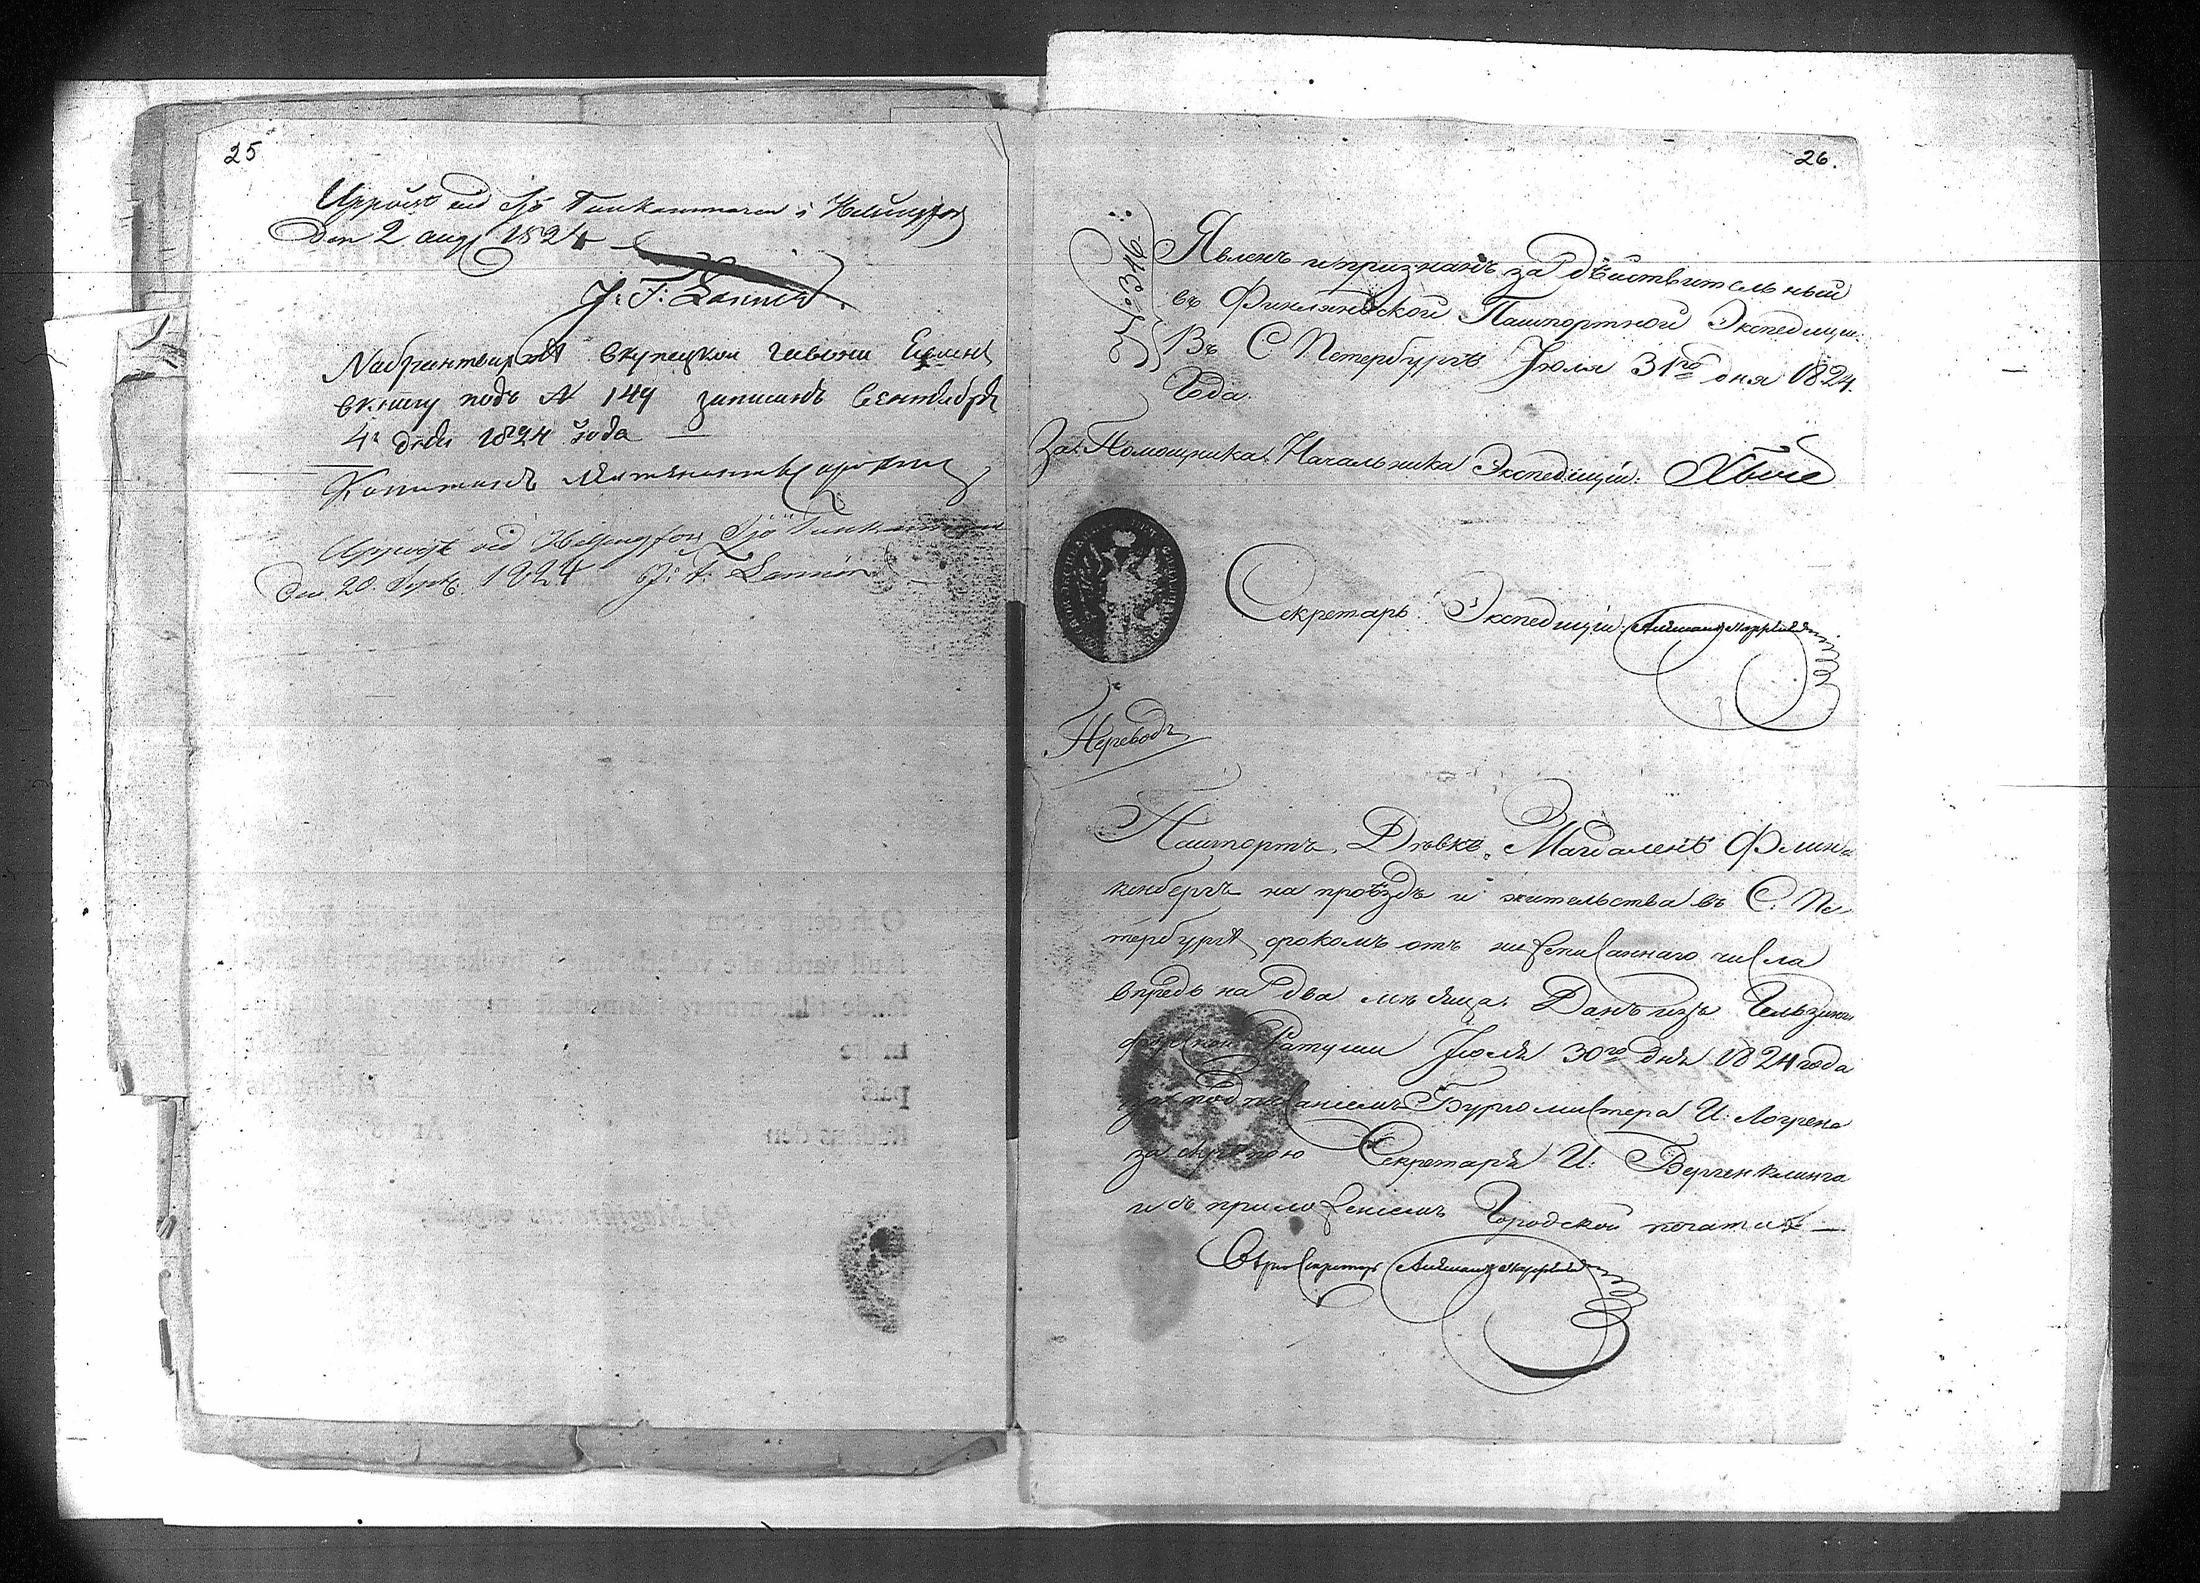 25
Uppvist vid Sjö Tullkammaren i Helsingfors
den 2 aug 1824
J: F: Lannér
На брантвахтѣ в купецкой гавони Явленъ
в книгу подъ № 149 записанъ Сентября
4го дня 1824 года
Капитанъ Лейтенантъ
Uppvist vid Helsingfors Sjö Tullkammare
den 20. Sept. 1824 J: F: Lannér
26.
Явленъ и признанъ за дѣйствительный
въ Финляндской Пашпортной Экспедиціи.
Въ С Петербургѣ Іюля 31го дня 1824.
Года.
За Помощника Начальника Экспедиціи:
Секретарь Экспедиціи
Переводъ
Пашпортъ Дѣвкѣ Магдаленѣ Флин
кенбергъ на проѣздъ и жительства въ С. Пе
тербургѣ срокомъ отъ нижеписаннаго числа
впредь на два мѣсяца. Данъ изъ Гельзинг
форской Ратуши Іюля 30го дня 1824 года
за подписаніемъ Бургомистера И: Логрена
за скрѣпою Секретаря И: Бергенклинга
и съ приложеніемъ Городской печати —